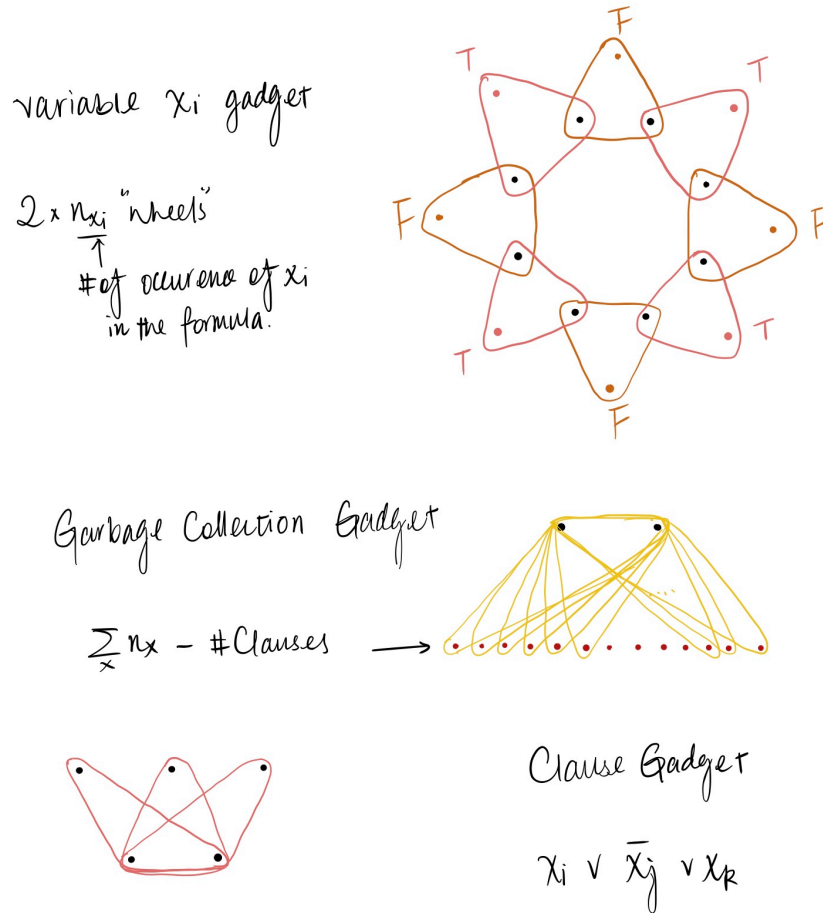 variable xi gadget
F
T
T
2 × nxi "wheels"
F
F
# of occurence of xi
in the formula.
T
T
F
Garbage Collection Gadget
∑x nx - # Clauses →
...
Clause Gadget
xi ∨ x̄j ∨ xk